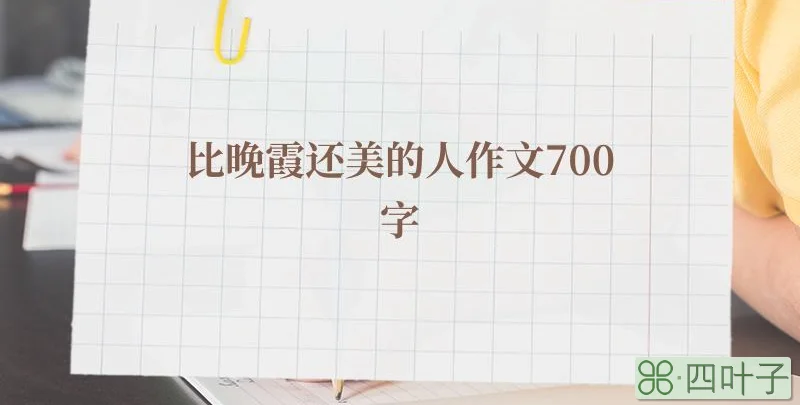 比晚霞还美的人作文700
字
四叶子